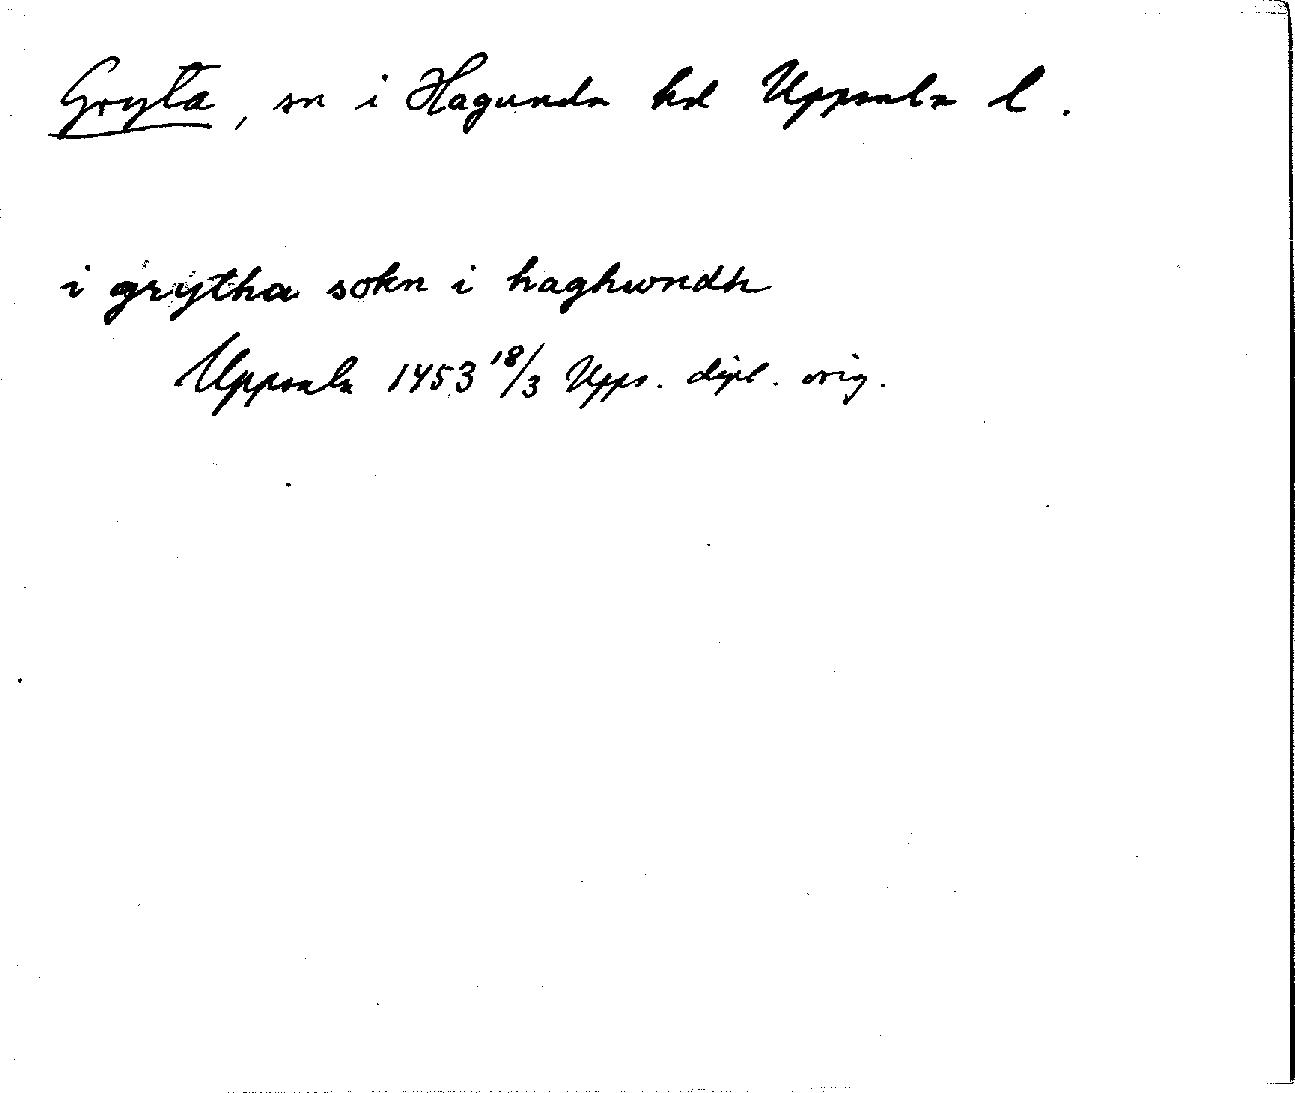 Gryta, sn i Hagunda hd Uppsala l.
i grytha sokn i haghwndh
Uppsala 1453 18/3 Upps. dipl. orig.